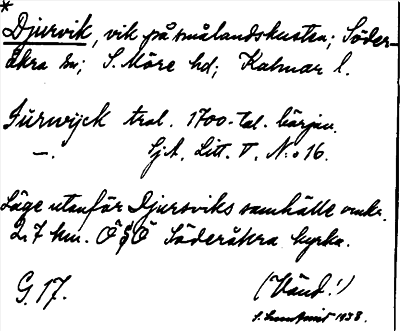 *
Djursvik, vik på smålandskusten; Söder-
åkra sn; S. Möre hd; Kalmar l.
Iurwijck trol. 1700-tal. början.
—. Sj. A. Litt. T. No 16.
Läge utanför Djursviks samhälle omkr.
2,7 km. Ö§Ö Söderåkra kyrka.
G. 17. (Vänd!)
1938.